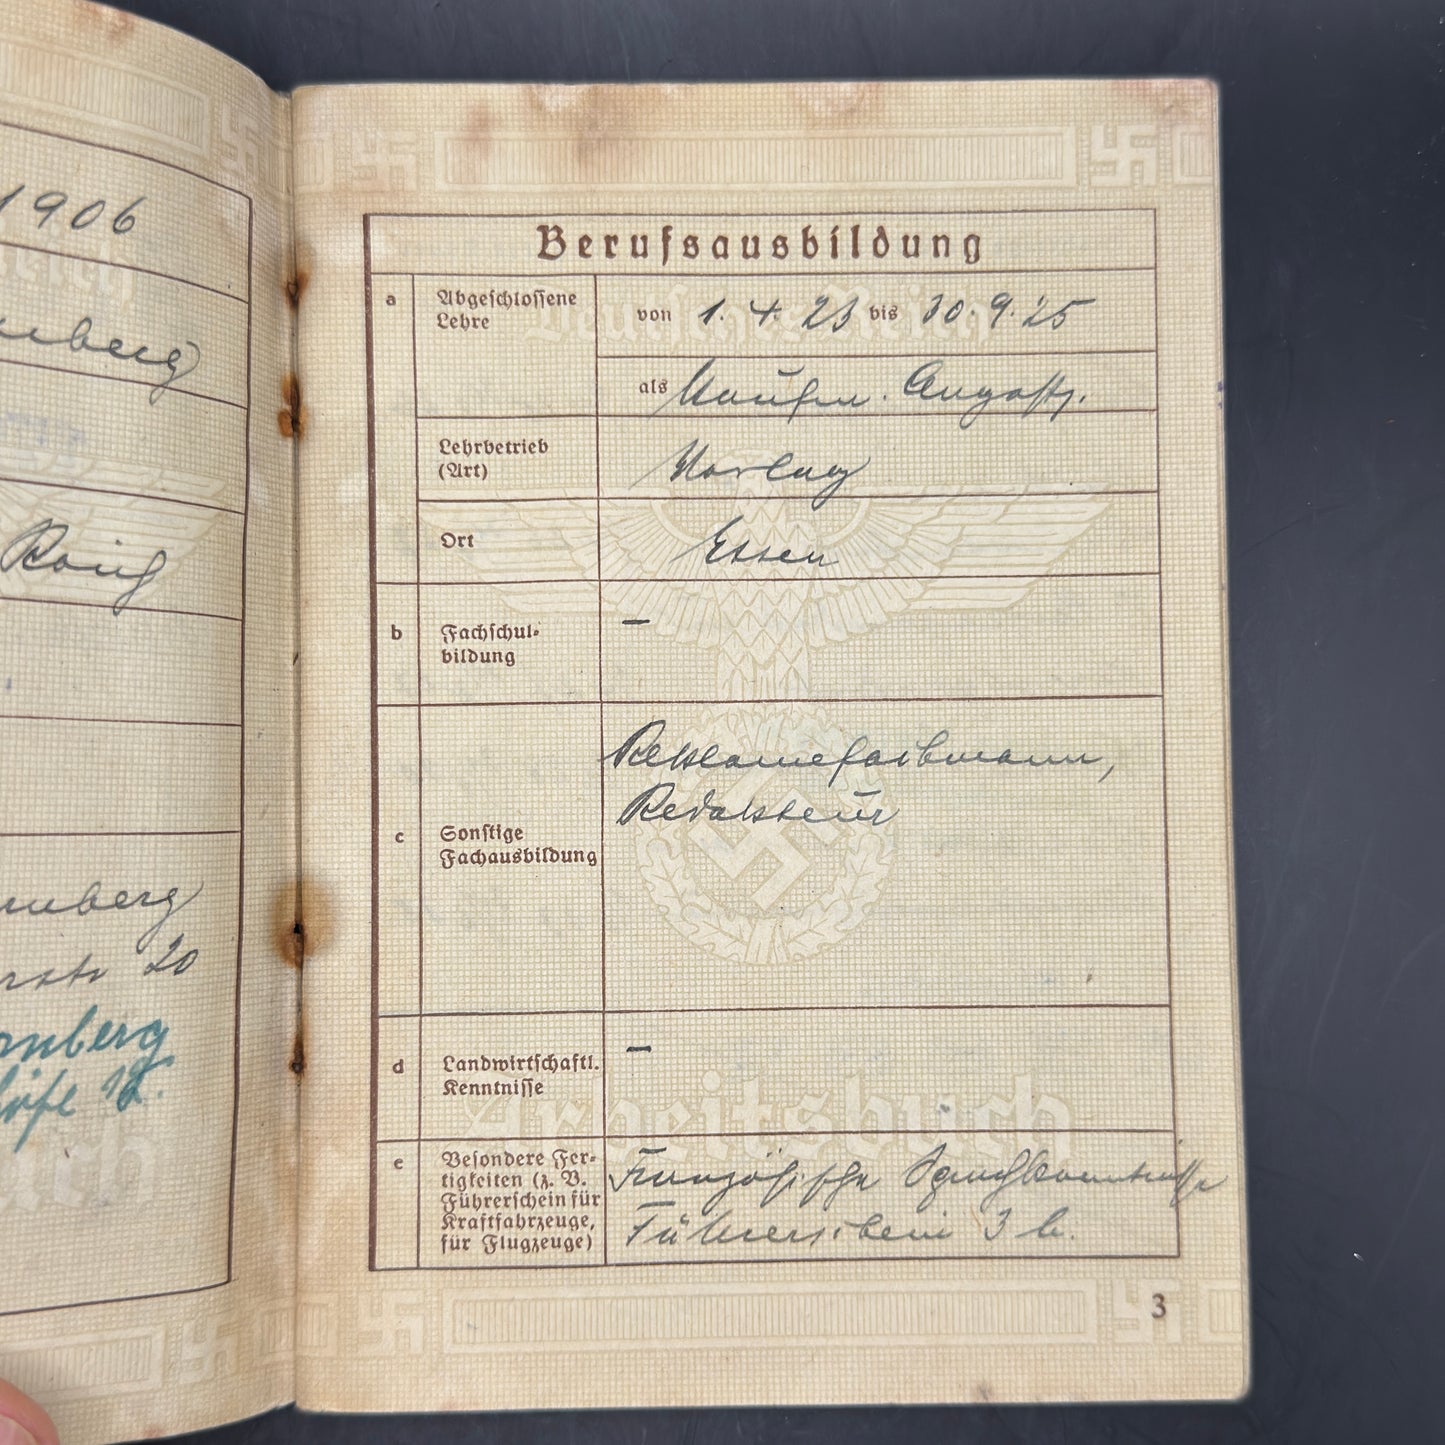 1906
nberg
König
rnberg
rstr 20
rnberg
12.
Berufsausbildung
a
Abgeschlossene
Lehre
von 1. 4. 23 bis 30. 9. 25
als Kaufm. Angest.
Lehrbetrieb
(Art)
Verlag
Ort
Essen
b
Fachschul-
bildung
–
c
Sonstige
Fachausbildung
Reklamefachmann,
Redakteur
d
Landwirtschaftl.
Kenntnisse
–
e
Besondere Fer-
tigkeiten (z. B.
Führerschein für
Kraftfahrzeuge,
für Flugzeuge)
Französische Sprachkenntnisse
Führerschein 3 b.
3
Deutsches Reich
Arbeitsbuch